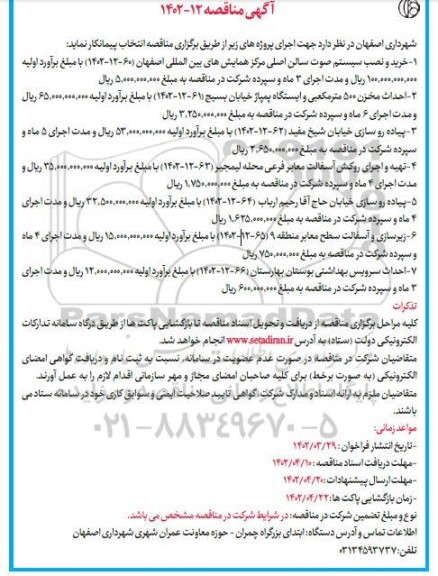 آگهی مناقصه ۱۲-۱۴۰۲
شهرداری اصفهان در نظر دارد جهت اجرای پروژه های زیر از طریق برگزاری مناقصه انتخاب پیمانکار نماید:
۱-خرید و نصب سیستم صوت سالن اصلی مرکز همایش های بین المللی اصفهان (۶۰-۱۲-۱۴۰۲) با مبلغ برآورد اولیه
۱۰۰,۰۰۰,۰۰۰,۰۰۰ ریال و مدت اجرای ۳ ماه و سپرده شرکت در مناقصه به مبلغ ۵,۰۰۰,۰۰۰,۰۰۰ ریال
۲-احداث مخزن ۵۰۰ مترمکعبی و ایستگاه پمپاژ خیابان بسیج (۶۱-۱۲-۱۴۰۲) با مبلغ برآورد اولیه ۶۵,۰۰۰,۰۰۰,۰۰۰ ریال
و مدت اجرای ۶ ماه و سپرده شرکت در مناقصه به مبلغ ۳,۲۵۰,۰۰۰,۰۰۰ ریال
۳-پیاده رو سازی خیابان شیخ مفید (۶۲-۱۲-۱۴۰۲) با مبلغ برآورد اولیه ۵۳,۰۰۰,۰۰۰,۰۰۰ ریال و مدت اجرای ۵ ماه و
سپرده شرکت در مناقصه به مبلغ ۲,۶۵۰,۰۰۰,۰۰۰ ریال
۴-تهیه و اجرای روکش آسفالت معابر فرعی محله لیمجیر (۶۳-۱۲-۱۴۰۲) با مبلغ برآورد اولیه ۳۵,۰۰۰,۰۰۰,۰۰۰ ریال و
مدت اجرای ۴ ماه و سپرده شرکت در مناقصه به مبلغ ۱,۷۵۰,۰۰۰,۰۰۰ ریال
۵-پیاده رو سازی خیابان حاج آقا رحیم ارباب (۶۴-۱۲-۱۴۰۲) با مبلغ برآورد اولیه ۳۲,۵۰۰,۰۰۰,۰۰۰ ریال و مدت اجرای
۴ ماه و سپرده شرکت در مناقصه به مبلغ ۱,۶۲۵,۰۰۰,۰۰۰ ریال
۶-زیرسازی و آسفالت سطح معابر منطقه ۹ (۶۵-۱۲-۱۴۰۲) با مبلغ برآورد اولیه ۱۵,۰۰۰,۰۰۰,۰۰۰ ریال و مدت اجرای ۴ ماه
و سپرده شرکت در مناقصه به مبلغ ۷۵۰,۰۰۰,۰۰۰ ریال
۷-احداث سرویس بهداشتی بوستان بهارستان (۶۶-۱۲-۱۴۰۲) با مبلغ برآورد اولیه ۱۲,۰۰۰,۰۰۰,۰۰۰ ریال و مدت اجرای
۳ ماه و سپرده شرکت در مناقصه به مبلغ ۶۰۰,۰۰۰,۰۰۰ ریال
تذکرات
کلیه مراحل برگزاری مناقصه از دریافت و تحویل اسناد مناقصه تا بازگشایی پاکت ها از طریق درگاه سامانه تدارکات
الکترونیکی دولت (ستاد) به آدرس www.setadiran.ir انجام خواهد شد.
متقاضیان شرکت در مناقصه در صورت عدم عضویت در سامانه، نسبت به ثبت نام و دریافت گواهی امضای
الکترونیکی (به صورت برخط) برای کلیه صاحبان امضای مجاز و مهر سازمانی اقدام لازم را به عمل آورند.
متقاضیان ملزم به ارائه اسناد و مدارک شرکت، گواهی تایید صلاحیت ایمنی و سوابق کاری خود در سامانه ستاد می
باشند.
۰۲۱-۸۸۳۴۹۶۷۰-۵
مواعد زمانی:
-تاریخ انتشار فراخوان: ۱۴۰۲/۰۳/۲۹
-مهلت دریافت اسناد مناقصه: ۱۴۰۲/۰۴/۱۰
-مهلت ارسال پیشنهادات: ۱۴۰۲/۰۴/۲۰
-زمان بازگشایی پاکت ها: ۱۴۰۲/۰۴/۲۲
نوع و مبلغ تضمین شرکت در مناقصه: در شرایط شرکت در مناقصه مشخص می باشد.
اطلاعات تماس و آدرس دستگاه: ابتدای بزرگراه چمران - حوزه معاونت عمران شهری شهرداری اصفهان
تلفن: ۰۳۱۳۴۵۹۳۷۳۷